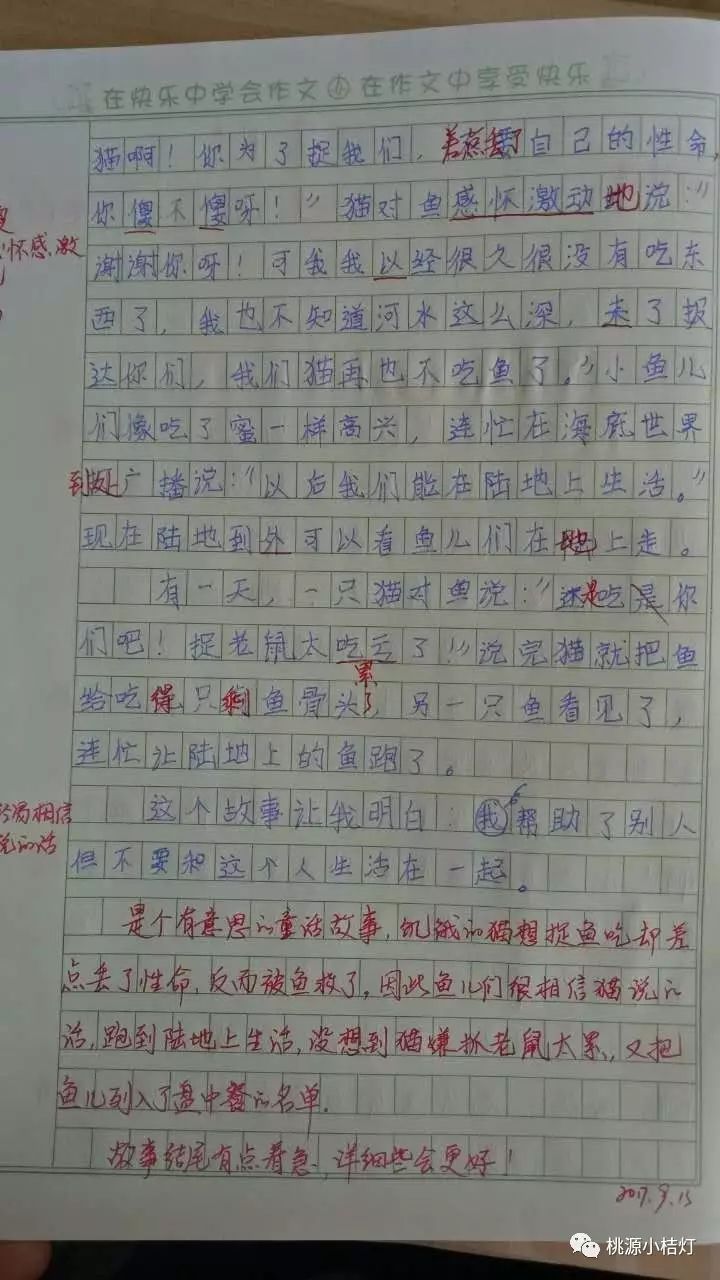 在快乐中学会作文 在作文中享受快乐
猫啊！你为了捉我们，差点丢了自己的性命，
你傻不傻呀！”猫对鱼感怀激动地说：“
怀感激
谢谢你呀！可我我以经很久很没有吃东
西了，我也不知道河水这么深，来了报
达你们，我们猫再也不吃鱼了。”小鱼儿
们像吃了蜜一样高兴，连忙在海底世界
到 上广播说：“以后我们能在陆地上生活。”
现在陆地到外可以看鱼儿们在地上走。
有一天，一只猫对鱼说：“还是吃是你
们吧！捉老鼠太吃亏了！”说完猫就把鱼
累
给吃得只剩鱼骨头了，另一只鱼看见了，
连忙让陆地上的鱼跑了。
这个故事让我明白：我帮助了别人
相信
的话
但不要和这个人生活在一起。
是个有意思的童话故事，饥饿的猫想捉鱼吃却差
点丢了性命，反而被鱼救了，因此鱼儿们很相信猫说的
话，跑到陆地上生活，没想到猫嫌抓老鼠太累，又把
鱼儿列入了盘中餐的名单.
故事结尾有点着急，详细些会更好！
2017.9.15
桃源小桔灯